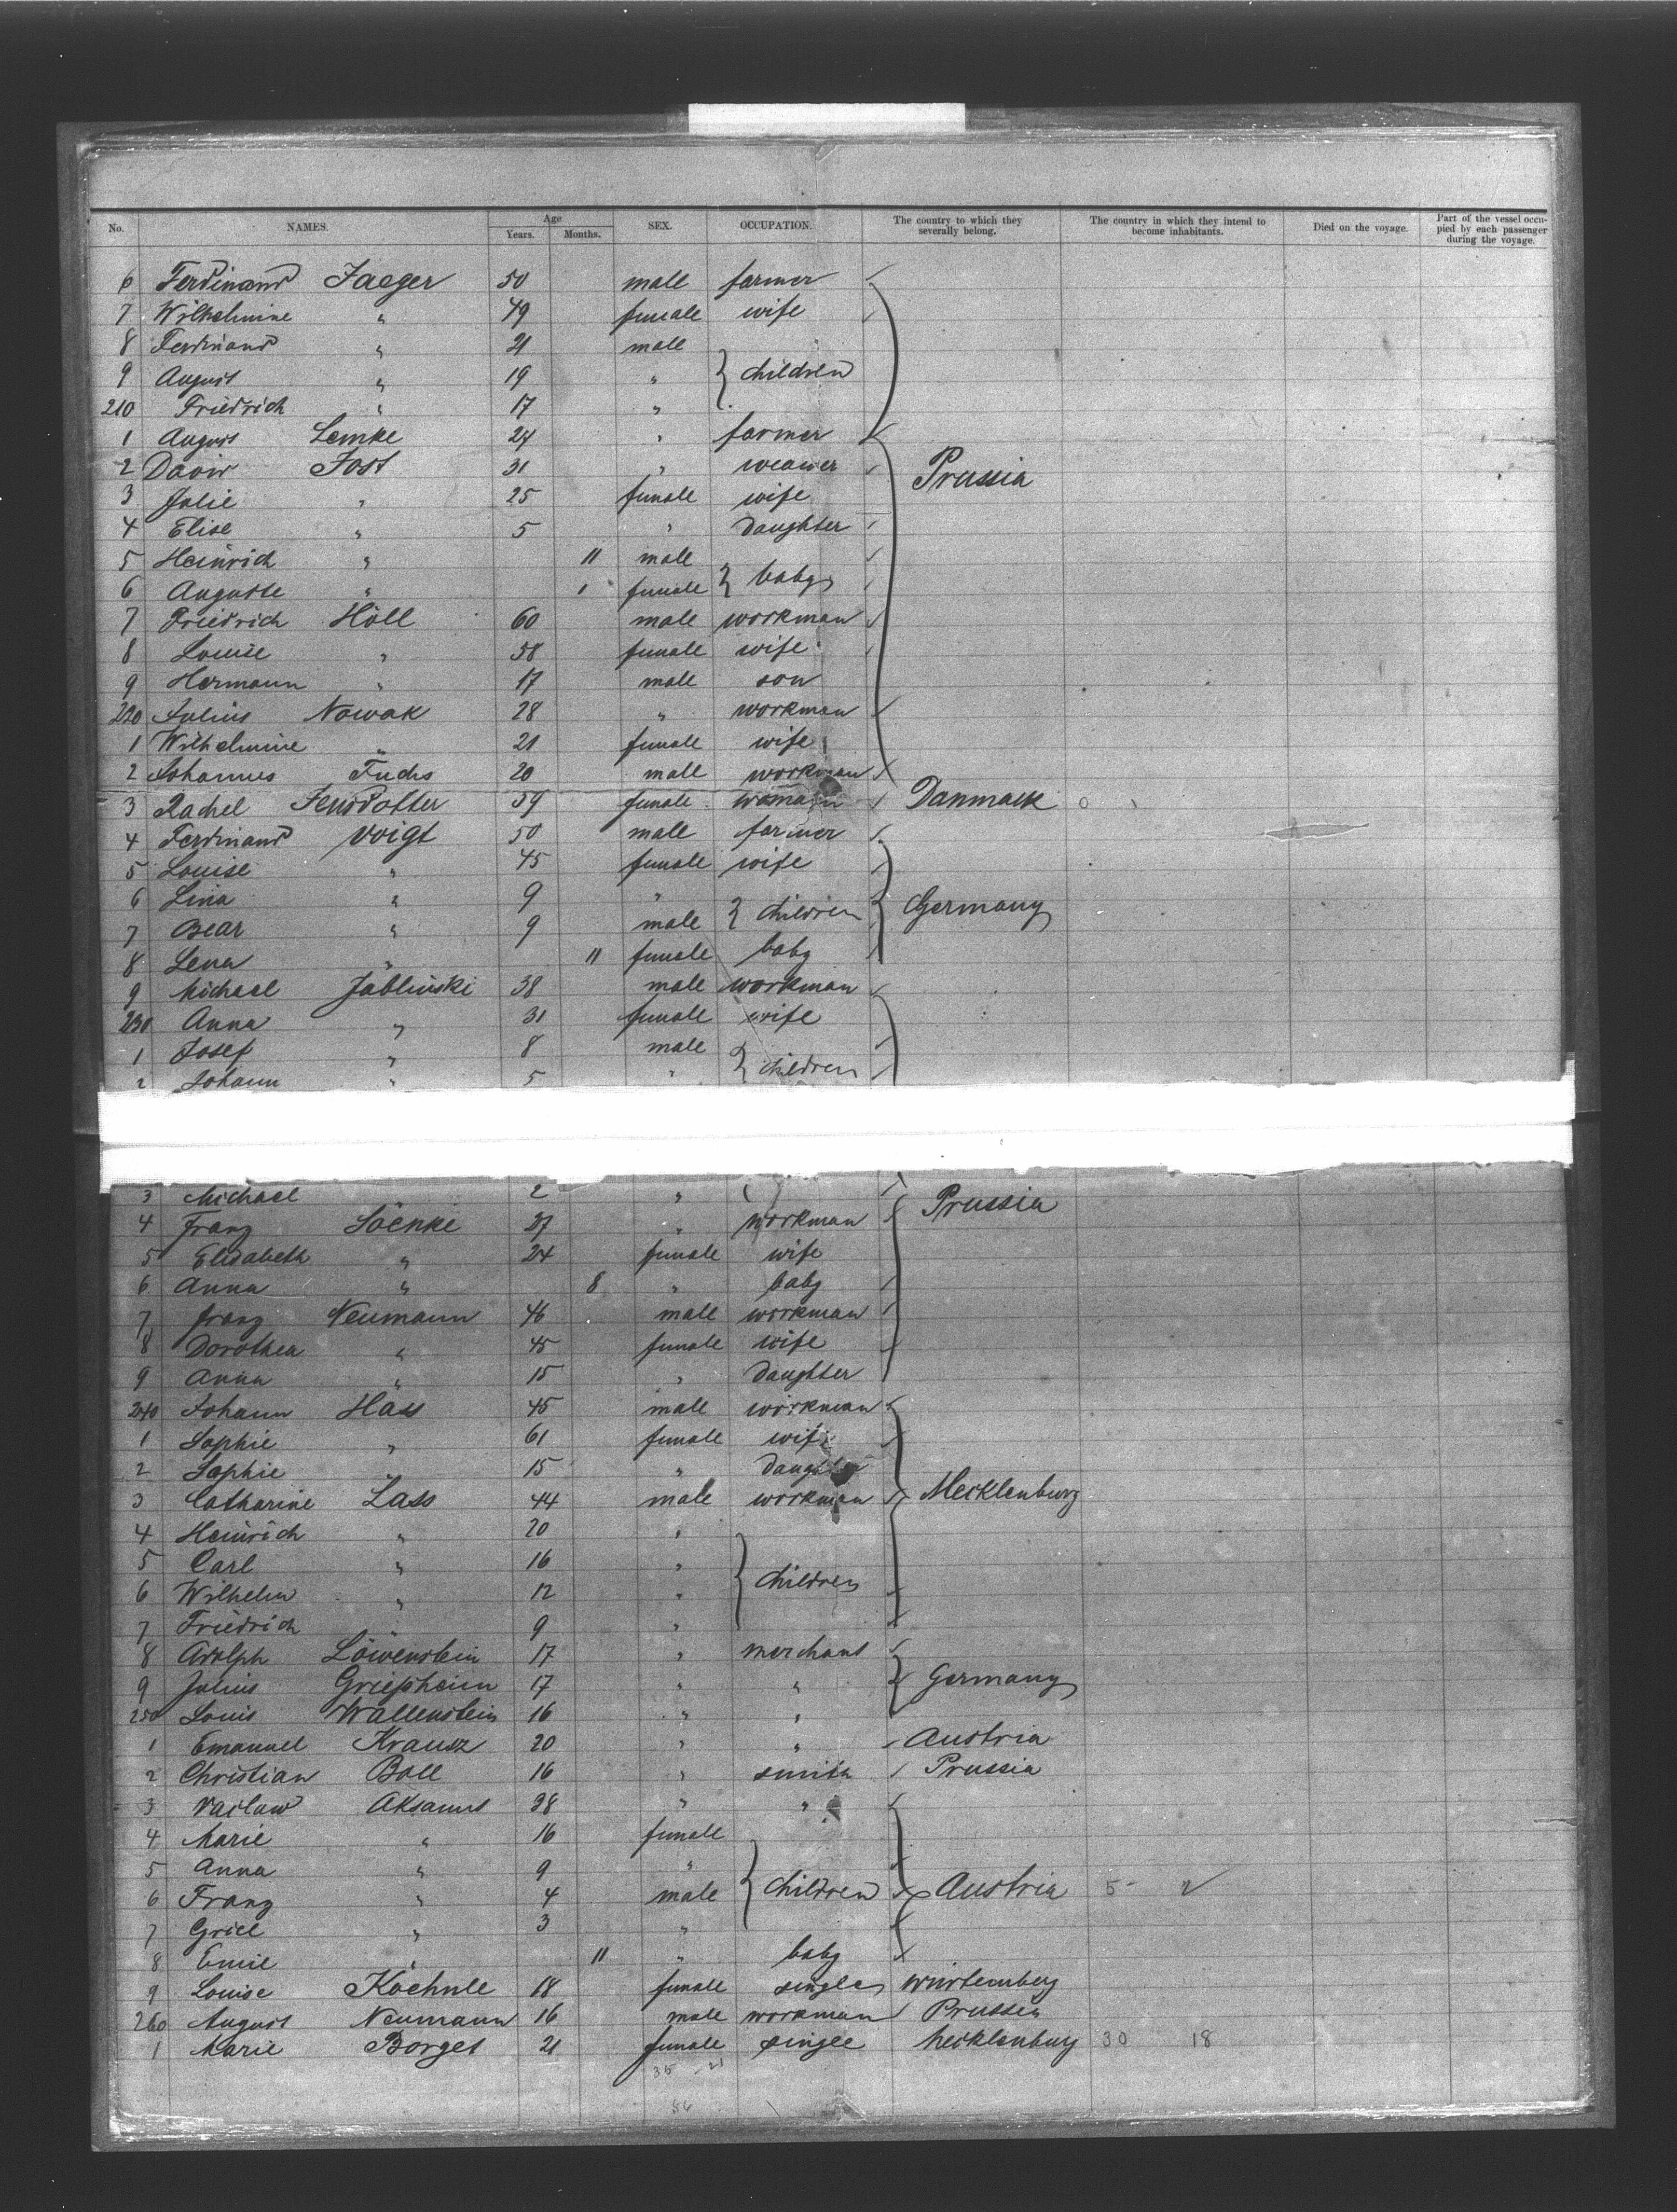 No. NAMES. Age Years. Months. SEX. OCCUPATION. The country to which they severally belong. The country in which they intend to become inhabitants. Died on the voyage. Part of the vessel occupied by each passenger during the voyage.
6 Ferdinand Jaeger 50 male farmer
7 Wilhelmine " 49 female wife
8 Ferdinand " 21 male
9 August " 19 " children
210 Friedrich " 17 "
1 August Lemke 24 " farmer
2 David Jost 31 " weawer Prussia
3 Julie " 25 female wife
4 Elise " 5 " daughter
5 Heinrich " 11 male
6 Auguste " 1 female babys
7 Friedrich Höll 60 male workman
8 Louise " 58 female wife
9 Hermann " 17 male son
220 Julius Nowak 28 " workman
1 Wilhelmine " 21 female wife
2 Johannes Fuchs 20 male workman
3 Rachel 59 female woman Danmark 0
4 Ferdinand Voigt 50 male farmer
5 Louise " 45 female wife
6 Lina " 9 " children Germany
7 " 9 male
8 Lena " 11 female baby
9 Michael Jablinski 38 male workman
230 Anna " 31 female wife
1 Josef " 8 male
2 Johann " 5 " children
3 Michael 2 " Prussia
4 Franz 27 " workman
5 Elisabeth " 24 female wife
6 Anna " 8 " baby
7 Franz Neumann 46 male workman
8 Dorothea " 45 female wife
9 Anna " 15 " daughter
240 Johann Hass 45 male workman
1 Sophie " 61 female wife
2 Sophie " 15 " daughter
3 Catharine Lass 44 male workman Mecklenburg
4 Heinrich " 20 "
5 Carl " 16 "
6 Wilhelm " 12 " children
7 Friedrich " 9 "
8 Adolph Löwenstein 17 " merchant
9 Julius Griesheim 17 " " Germany
250 Louis Wallenstein 16 " "
1 Emanuel Krausz 20 " " Austria
2 Christian Boll 16 " smith Prussia
3 Vaclaw 38 " "
4 Marie " 16 female
5 Anna " 9 "
6 Franz " 4 male children Austria 5
7 " 3 "
8 Emil " 11 " baby
9 Louise Koehnle 18 female single Würtemberg
260 August Neumann 16 male workman Prussia
1 Marie Borget 21 female single Mecklenburg 30 18
35 21